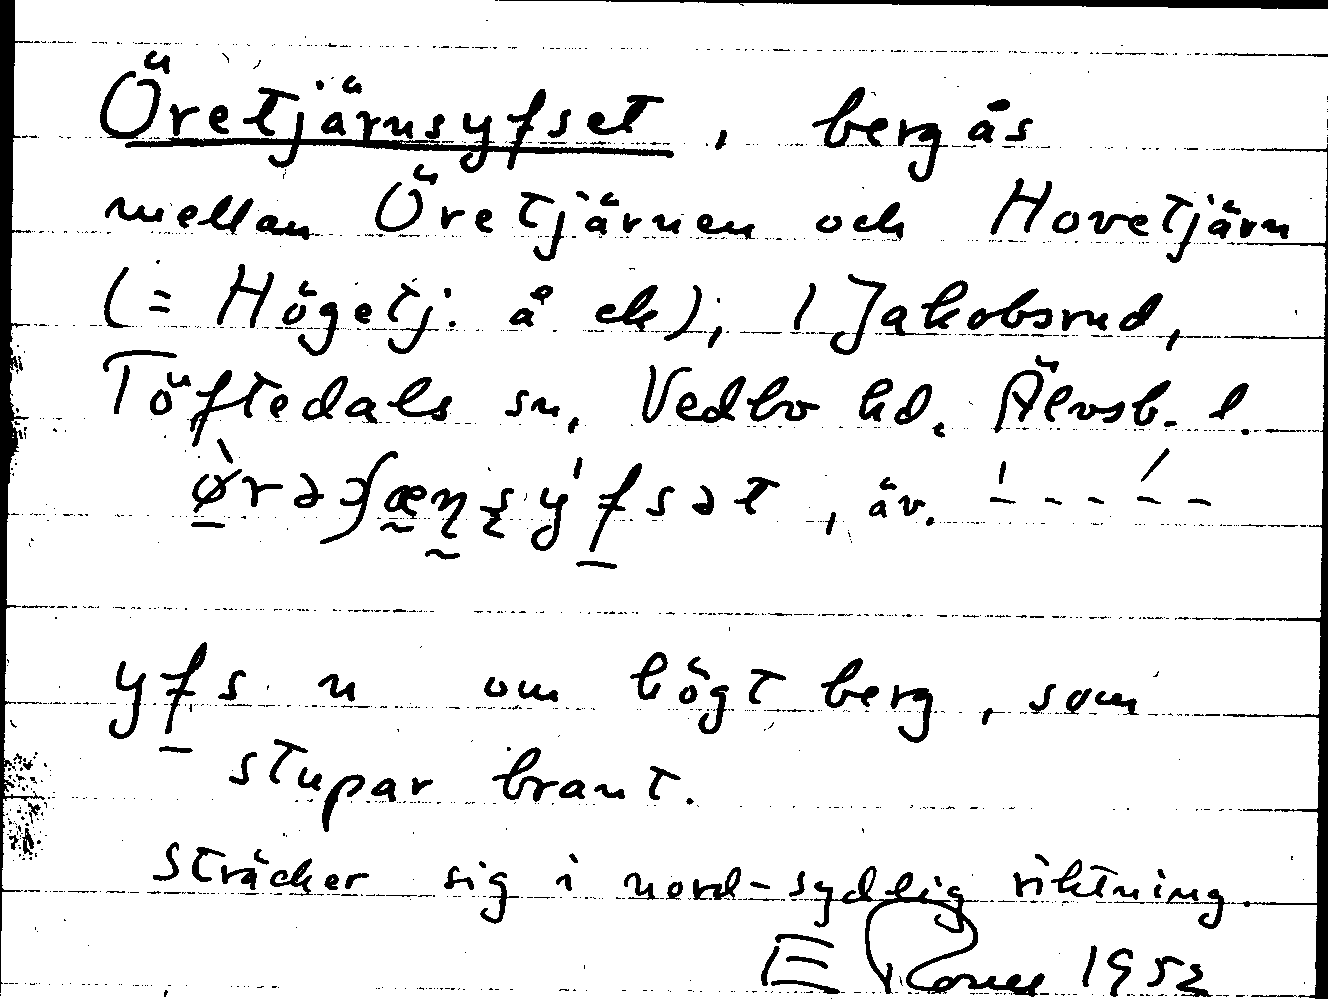 Öretjärnsyfset, bergås
mellan Öretjärnen och Hovetjärn
(= Högetj. å ek), 1 Jakobsrud,
Töftedals sn, Vedbo hd. Älvsb. l.
äv. – – – – –
yfs n om högt berg, som
stupar brant.
sträcker sig i nord-sydlig riktning.
E 1952